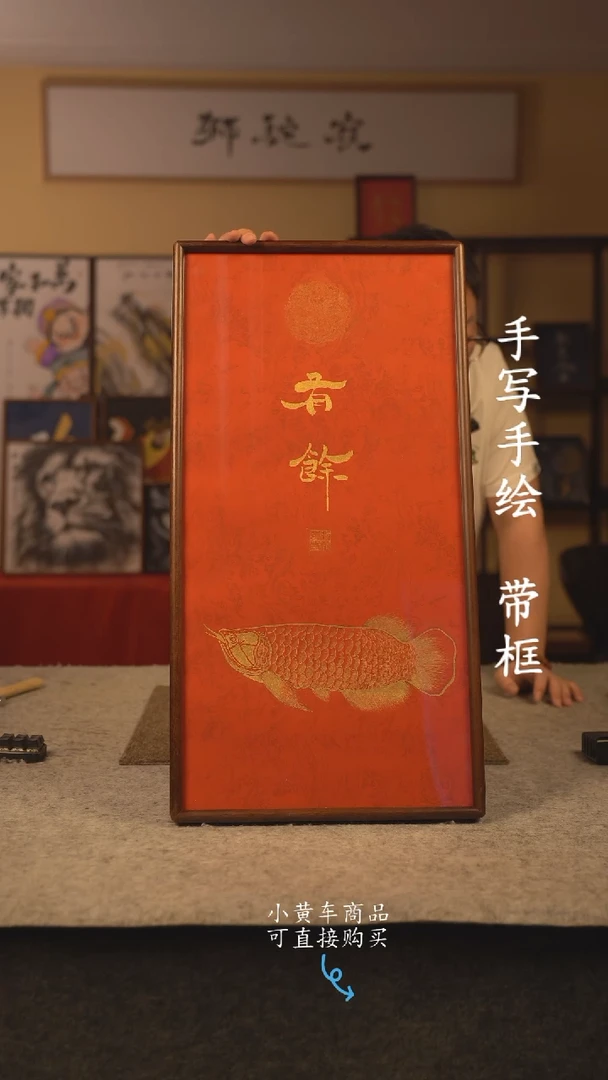 有餘
手写手绘 带框
小黄车商品
可直接购买